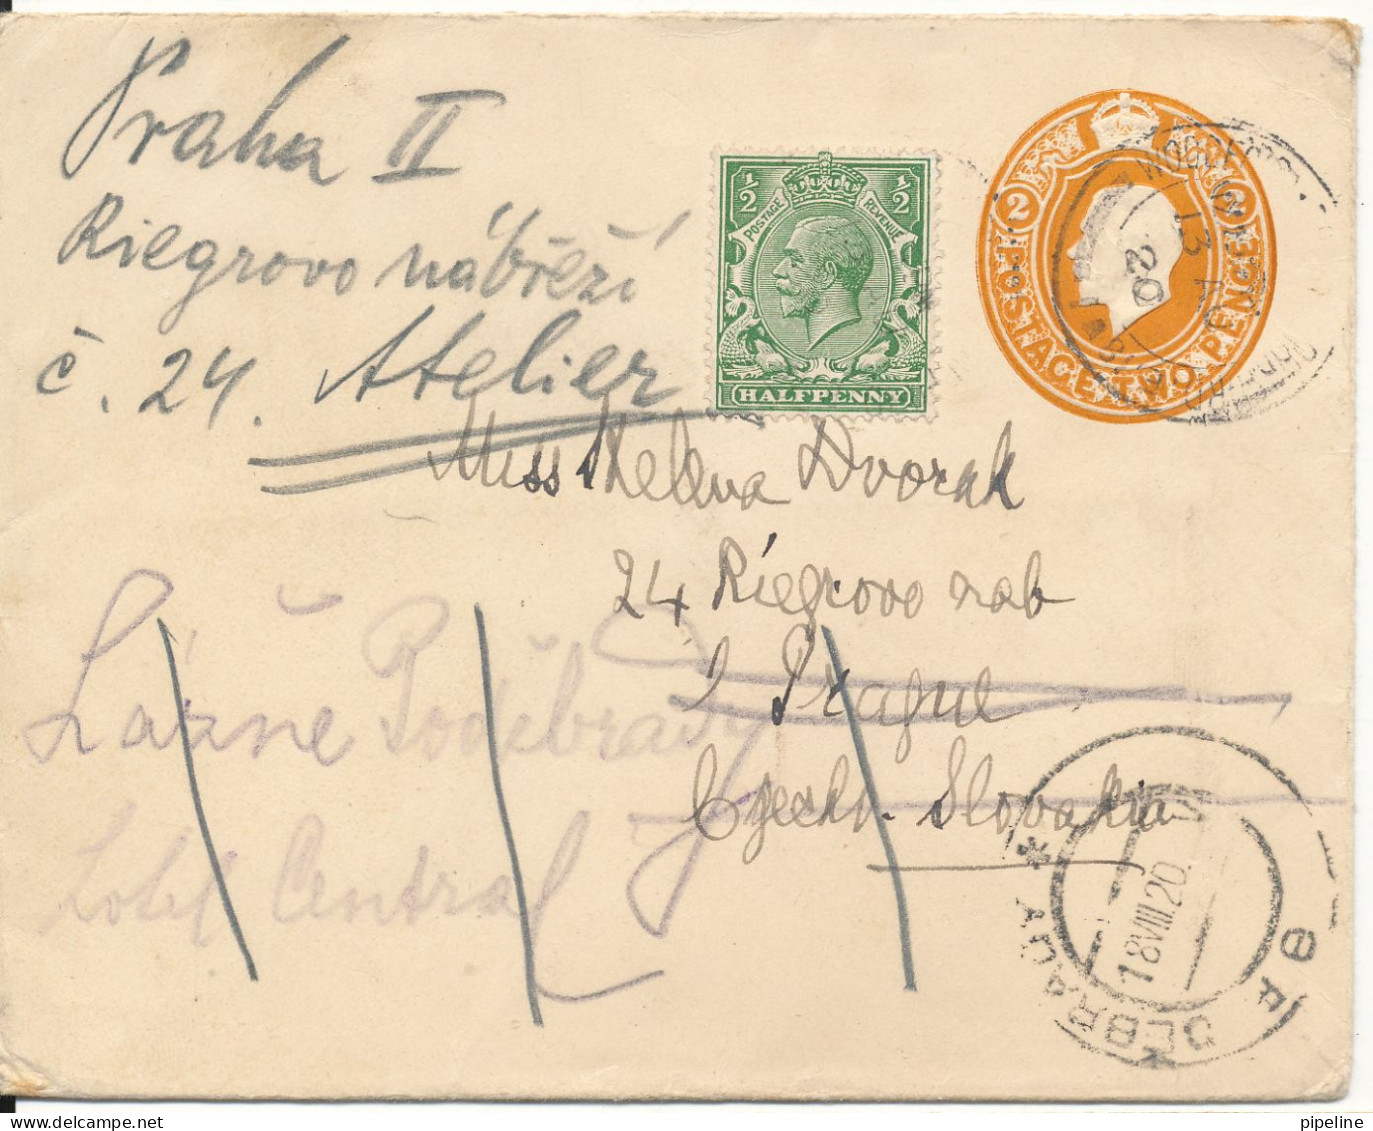 Praha II
Riegrovo nábřeží
č. 24. Atelier
½ ½
POSTAGE REVENUE
HALFPENNY
2 2
POSTAGE TWO PENCE
13 AU
20
Miss Helena Dvorak
24 Riegrovo nab
Prague
Czecho-Slovakia
Lázně Poděbrady
hotel Central
18VIII.20
pipeline